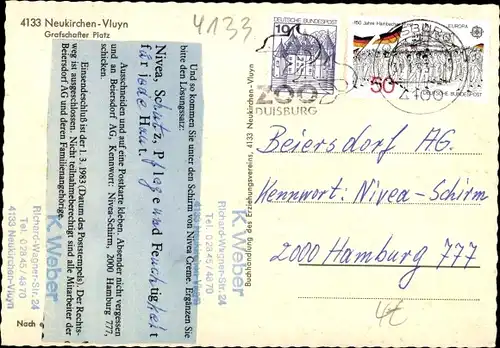 4133 Neukirchen-Vluyn
Grafschafter Platz
4133
Und so kommen Sie unter den Schirm von Nivea Creme. Ergänzen Sie
bitte den Lösungssatz:
Nivea, Schutz, Pflege und Feuchtigkeit
für jede Haut.
Ausschneiden und auf eine Postkarte kleben. Absender nicht vergessen
und an Beiersdorf AG, Kennwort: Nivea-Schirm, 2000 Hamburg 777,
schicken.
Einsendeschluß ist der 1. 3. 1983 (Datum des Poststempels). Der Rechts-
weg ist ausgeschlossen. Nicht teilnahmeberechtigt sind alle Mitarbeiter der
Beiersdorf AG und deren Familienangehörige.
K. Weber
Richard-Wagner-Str. 24
Tel. 02845/4870
4133 Neukirchen-Vluyn
K. Weber
Richard-Wagner-Str. 24
Tel. 02845/4870
Nach
Buchhandlung des Erziehungsvereins · 4133 Neukirchen-Vluyn
DEUTSCHE BUNDESPOST
ZOO
DUISBURG
EUROPA
50
DEUTSCHE BUNDESPOST
4100
Beiersdorf AG
Kennwort: Nivea-Schirm
2000 Hamburg 777